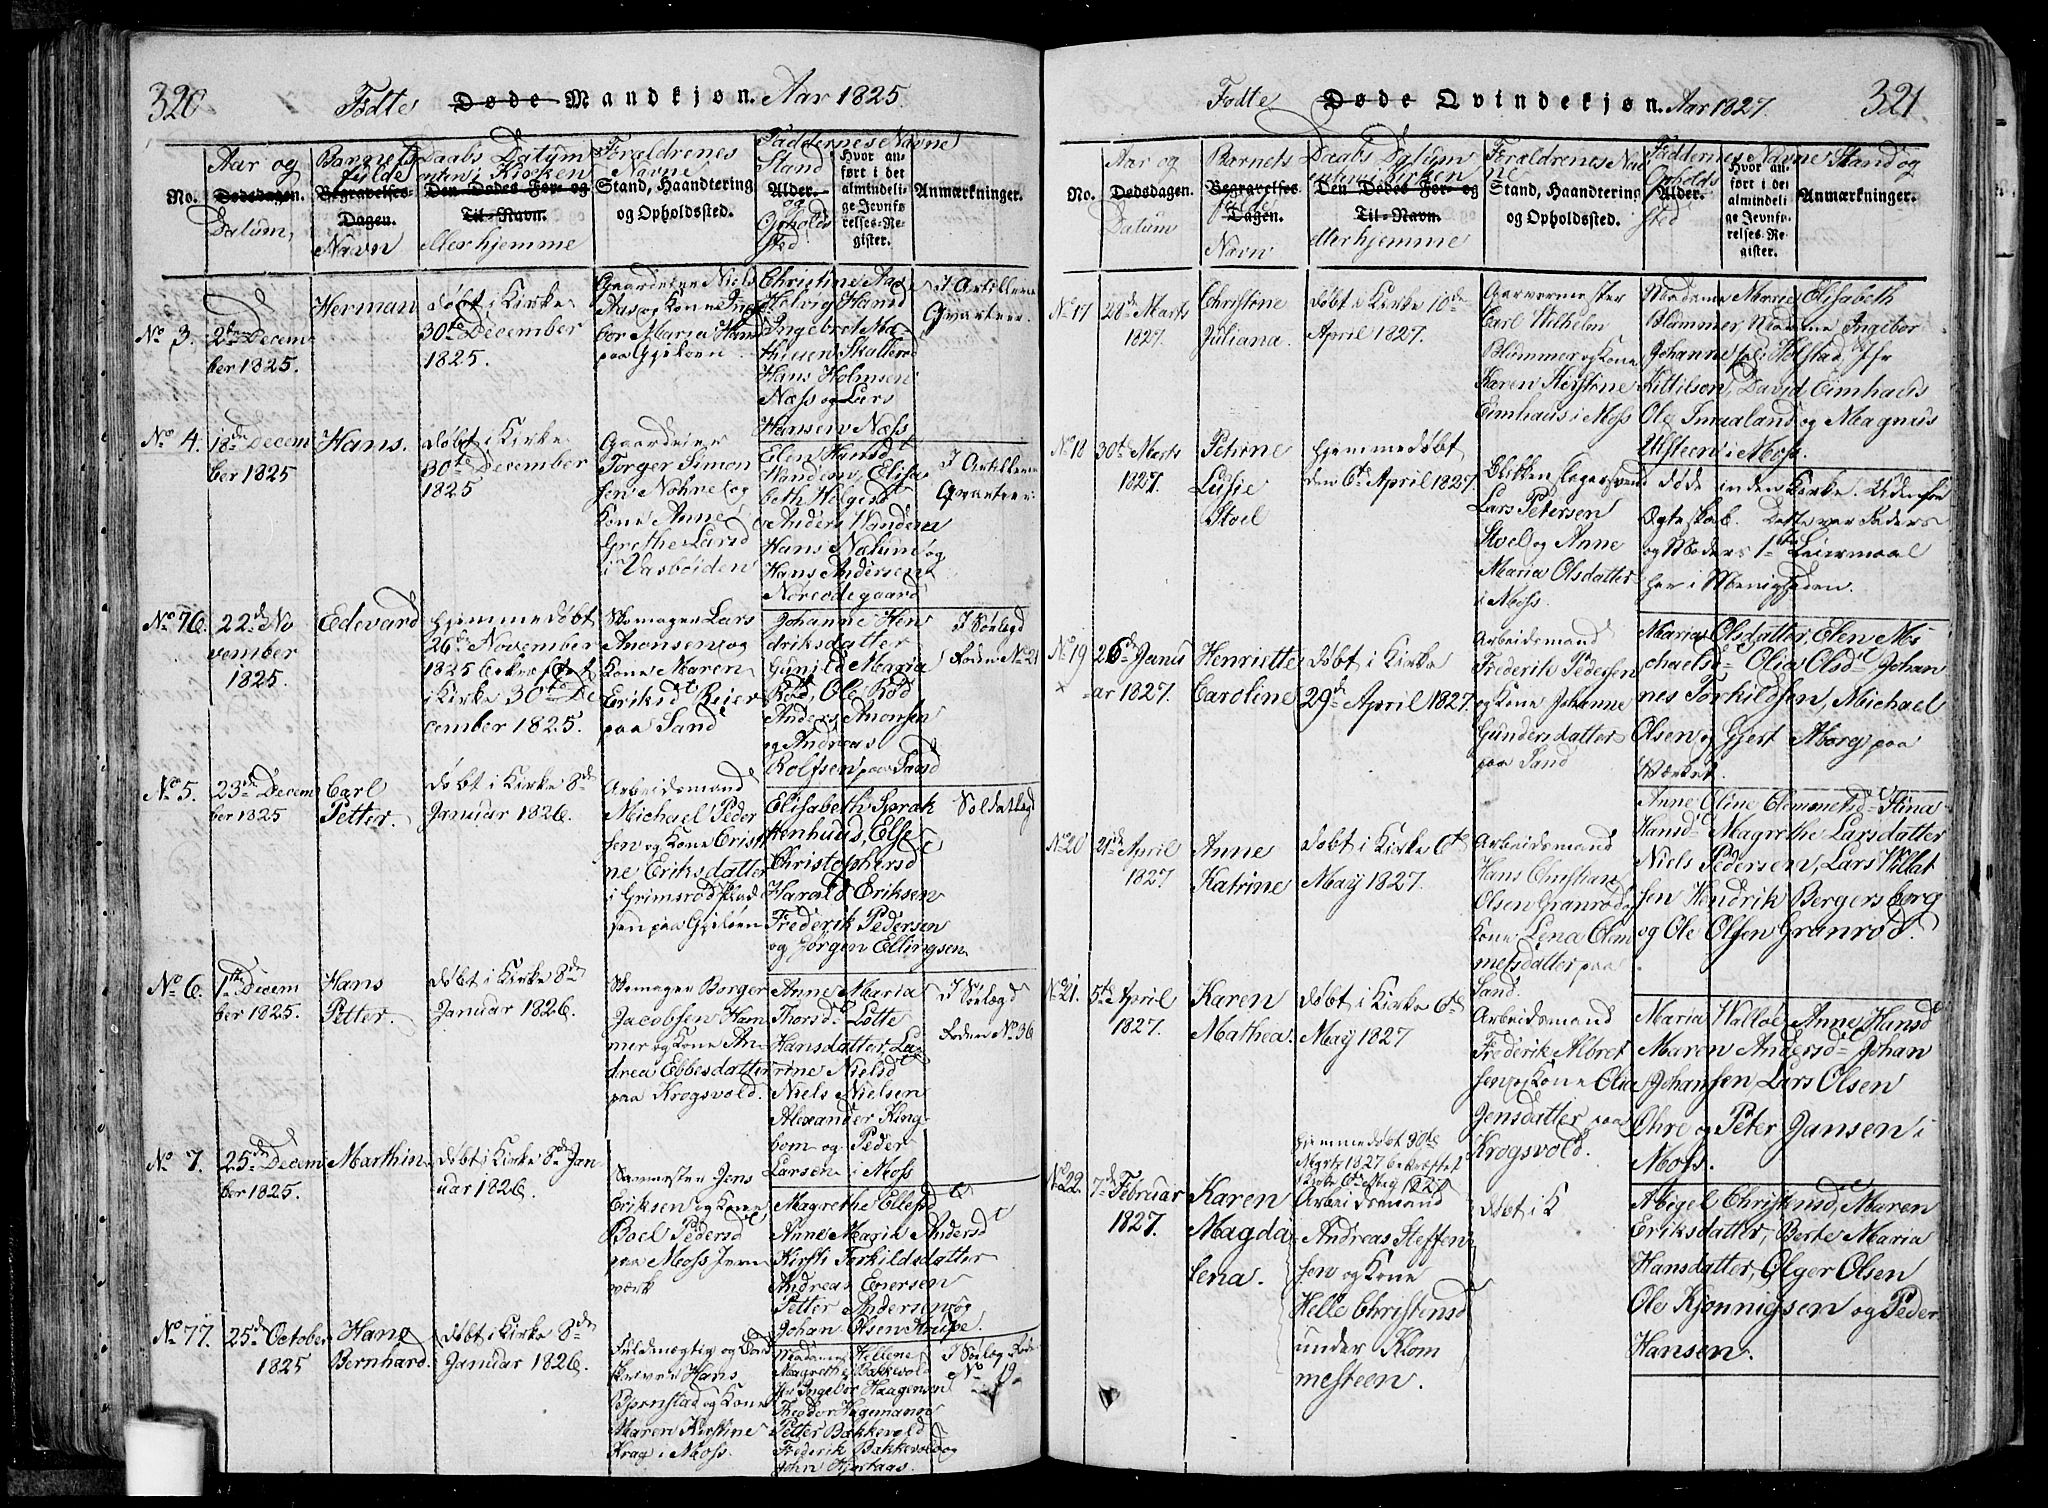 320
Fødte Døde Mandkjøn. Aar 1825.
No.
Aar og
Dødsdagen.
Datum,
Barnets
fulde
Begravelses-
Dagen.
Navn
Daabs Datum
enten i Kirken
Den Dødes For- og
Til-Navn.
eller hjemme
Forældrenes
Navne
Stand, Haandtering
og Opholdssted.
Faddernes Navne
Stand
Alder.
og
Opholds
sted
Hvor an-
ført i det
almindeli-
ge Jevnfø-
relses-Re-
gister.
Anmærkninger.
No 3.
2den Decem
ber 1825.
Herman
døbt i Kirke
30te December
1825.
Gaardeier Niels
Aas og Kone Inge
bor Maria Hansd
paa Gjeløen
Christine Aas
Helvig Hansd
Ingebret Ma-
thiesen Skallerød
Hans Holmsen
Næss og Lars
Hansen Næss
I Artillerie
Qvarteer.
No 4.
18de Decem
ber 1825
Hans.
døbt i Kirke
30te December
1825
Gaardeier
Torger Simon
sen Nohre og
Kone Anne
Grethe Larsd
i Vasbøiden
Elen Hansd
Vanden, Elisa
beth Helgesd
Anders Vanden
Hans Nalum og
Hans Andersen
Noreødegaard
I Artillerie
Qvarteer.
No 76.
22de No
vember
1825.
Edevard
hjemmedøbt
26de November
1825 bekræftet
i Kirke 30te De
cember 1825.
Skomager Lars
Anonsen og
Kone Maren
Eriksd Reier
paa Sand
Johanne Hen
driksdatter
Gunild Maria
Rød, Ole Rød
Anders Anonsen
og Andreas
Rolfsen paa Sand
I Sølægd
Roden No 21
No 5.
23de Decem
ber 1825
Carl
Petter.
døbt i Kirke 8de
Januar 1826.
Arbeidsmand
Michael Peder
sen og Kone Cristi
ne Eriksdatter
i Grimsrød Plad
sen paa Gjeløen
Elisabeth Sprak
Henhuus, Else
Christophersd
Harald Eriksen
Frederik Pedersen
og Jørgen Ellingsen
Soldatlægd
No 6.
1ste Decem
ber 1825.
Hans
Petter.
døbt i Kirke 8de
Januar 1826.
Skomager Borger
Jacobsen Ham
mer og Kone An
drea Ebbesdatter
paa Krogsvold.
Anne Maria
Thorsd Lotte
Hansdatter, La
rine Nielsd
Niels Nielsen
Alexander King
bom og Peder
Larsen i Moss
I Sølægd
Roden No 36
No 7.
25de Decem
ber 1825.
Marthin
døbt i Kirke 8de Jan
uar 1826.
Jens
Eriksen og Kone
Boel Pedersd
paa Moss Jern
værk
Magrethe Ellefsd
Anne Maria Andersd
Kirsti Torkildsdatter
Andreas Enersen
Petter Andersen og
Johan Olsen Krupe.
No 77.
25de October
1825
Hans
Bernhard.
døbt i Kirke 8de
Januar 1826.
Fuldmægtig og
Hans
Bjørnstad og Kone
Maren Kirstine
Krag i Moss.
Madame Hellene
Magrethe Bakkevold
Jfr Ingebor Haagensen
Theodor Hagemann
Petter Bakkevold
Frederik Bakkevold og
John Hjertaas.
I Sølæg Rode
No 19.
321
Fødte Døde Qvindekjøn. Aar 1827.
No.
Aar og
Dødsdagen.
Datum
Barnets
Begravelses
fulde
Dagen.
Navn
Daabs Datum
enten i Kirken
Den Dødes For- og
Til-Navn.
eller hjemme
Forældrenes Nav
ne
Stand, Haandtering
og Opholdssted.
Faddernes Navne Stand og
Opholds
Alder.
sted
Hvor an-
ført i det
almindeli
ge Jevnfø-
relses-Re-
gister.
Anmærkninger.
No 17
28de Marts
1827.
Christine
Juliana.
døbt i Kirke 16de
April 1827.
Garvermester
Carl Wilhelm
Blømmer og Kone
Karen Kirstine
Eimhaus i Moss
Madame Marie Elisabeth
Blømmer Madame Ingebor
Johanne Holstad, Jfr
Kittilsen, David Eimhaus
Ole Smaaland og Magnus
Ulsteen i Moss.
No 18
30te Marts
1827.
Petrine
Lusie
Stoel
hjemmedøbt
den 6te April 1827.
Blikkenslagersvend
Lars Petersen
Stoel og Anne
Maria Olsdatter
i Moss.
døde inden Kirke. Udenfor
Ægteskab. Dette var Faders
og Moders 1te Leiermaal
her i Menigheden.
No 19
×
26de Janu
ar 1827.
Henriette
Caroline
døbt i Kirke
29de April 1827.
Arbeidsmand
Frederik Pedersen
og Kone Johanne
Gundersdatter
paa Sand
Maria Olsdatter, Elen Mi
chaelsd Olia Olsd Johan
nes Torkildsen, Michael
Olsen og Gjert Aborg paa
Værket.
No 20
21de April
1827
Anne
Katrine
døbt i Kirke 6te
May 1827.
Arbeidsmand
Hans Christian
Olsen Granrød og
Kone Lena Clem
metsdatter paa
Sand.
Anne Oline Clemmetsd Stina
Hansd Magrethe Larsdatter
Niels Pedersen, Lars Villat
sen Hendrik Bergersborg
og Ole Olsen Granrød.
No 21.
5te April
1827.
Karen
Mathea.
døbt i Kirke 6te
May 1827
Arbeidsmand
Frederik Albret
sen og Kone Olia
Jensdatter paa
Krogsvold.
Maria Walløe Anne Hansd
Maren Andersd Johan
Johansen Lars Olsen
Ohre og Peter Jansen i
Moss.
No 22.
7de Februar
1827.
Karen
Magda
lena.
hjemmedøbt 30te
Marts 1827 bekræftet
i Kirke 6te May 1827
Arbeidsmand
Andreas Steffen
sen og Kone
Helle Christensd
under Klom
mesteen.
døbt i K
Abigel Christensd, Maren
Eriksdatter, Berte Maria
Hansdatter, Olger Olsen
Ole Kjonnigsen og Peder
Hansen.